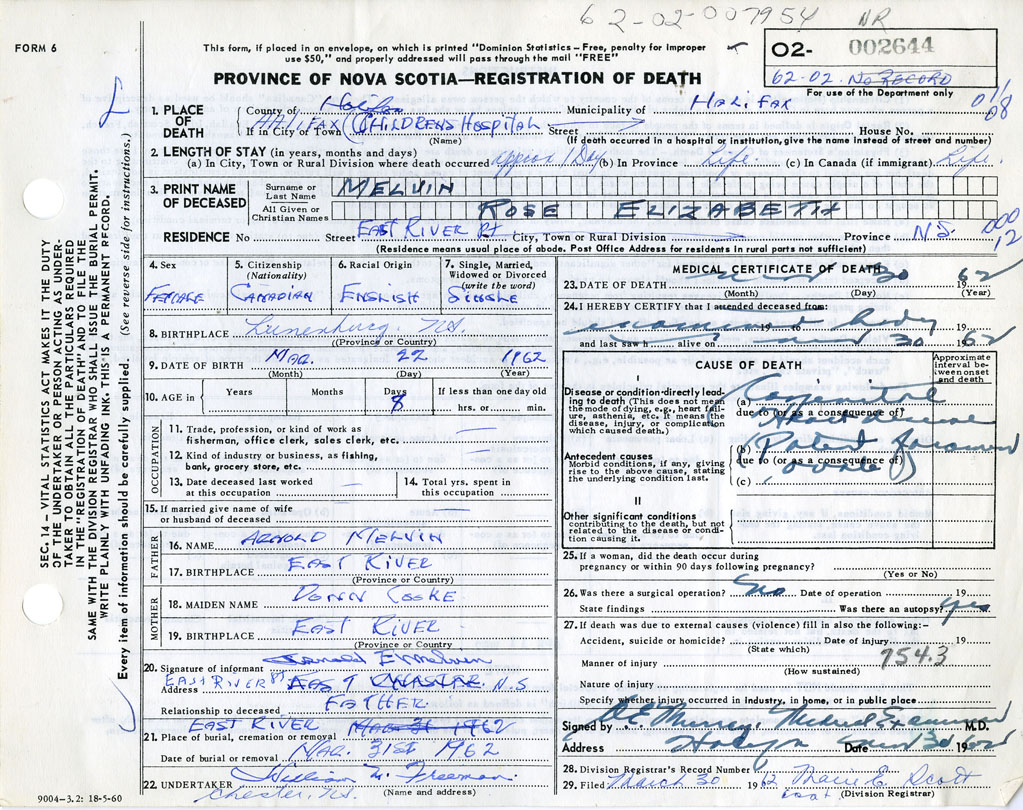 62-02-007954 NR
FORM 6
This form, if placed in an envelope, on which is printed "Dominion Statistics – Free, penalty for improper
use $50," and properly addressed will pass through the mail "FREE"
02- 002644
62-02. No RECORD
For use of the Department only
PROVINCE OF NOVA SCOTIA—REGISTRATION OF DEATH
1. PLACE OF DEATH
County of Halifax Municipality of HALIFAX
If in City or Town HALIFAX (CHILDRENS HOSPITAL Street House No.
(Name) (If death occurred in a hospital or institution, give the name instead of street and number)
2. LENGTH OF STAY (in years, months and days)
(a) In City, Town or Rural Division where death occurred approx 1 Day (b) In Province Life. (c) In Canada (if immigrant) Life.
3. PRINT NAME OF DECEASED
Surname or Last Name MELVIN
All Given or Christian Names ROSE ELIZABETH
RESIDENCE No Street EAST RIVER Pt City, Town or Rural Division Province N.S.
000
12
(Residence means usual place of abode. Post Office Address for residents in rural parts not sufficient)
4. Sex FEMALE
5. Citizenship (Nationality) CANADIAN
6. Racial Origin ENGLISH
7. Single, Married, Widowed or Divorced (write the word) SINGLE
8. BIRTHPLACE Lunenburg. N.S.
(Province or Country)
9. DATE OF BIRTH MAR. 22 1962
(Month) (Day) (Year)
10. AGE in Years Months Days 8 If less than one day old hrs. or min.
OCCUPATION
11. Trade, profession, or kind of work as fisherman, office clerk, sales clerk, etc.
12. Kind of industry or business, as fishing, bank, grocery store, etc.
13. Date deceased last worked at this occupation
14. Total yrs. spent in this occupation
15. If married give name of wife or husband of deceased
FATHER
16. NAME ARNOLD MELVIN
17. BIRTHPLACE EAST RIVER
(Province or Country)
MOTHER
18. MAIDEN NAME DONN COOKE
19. BIRTHPLACE EAST RIVER
(Province or Country)
20. Signature of informant
Address EAST RIVER N.S.
Relationship to deceased FATHER
21. Place of burial, cremation or removal EAST RIVER Mar 31 1962
Date of burial or removal MAR. 31ST 1962
22. UNDERTAKER William Freeman
Chester, N.S. (Name and address)
9004–3.2: 18-5-60
MEDICAL CERTIFICATE OF DEATH
23. DATE OF DEATH 30 62
(Month) (Day) (Year)
24. I HEREBY CERTIFY that I attended deceased from:
examined body 19 to 19
and last saw h alive on 30 1962
CAUSE OF DEATH
Approximate interval between onset and death
I
Disease or condition directly leading to death (This does not mean the mode of dying, e.g., heart failure, asthenia, etc. It means the disease, injury, or complication which caused death.)
(a) Congenital
due to (or as a consequence of) Heart disease
Antecedent causes
Morbid conditions, if any, giving rise to the above cause, stating the underlying condition last.
(b) Patent foramen
due to (or as a consequence of) ovale
(c)
II
Other significant conditions contributing to the death, but not related to the disease or condition causing it.
25. If a woman, did the death occur during pregnancy or within 90 days following pregnancy?
(Yes or No)
26. Was there a surgical operation? No Date of operation 19
State findings Was there an autopsy? yes
27. If death was due to external causes (violence) fill in also the following:–
Accident, suicide or homicide? Date of injury 19
(State which)
754.3
Manner of injury
(How sustained)
Nature of injury
Specify whether injury occurred in industry, in home, or in public place
Signed by Murray Medical Examiner M.D.
Address Date 30 1962
28. Division Registrar's Record Number
29. Filed March 30 1962 Marie E. Scott
(Division Registrar)
SEC. 14 – VITAL STATISTICS ACT MAKES IT THE DUTY
OF THE UNDERTAKER OR PERSON ACTING AS UNDERTAKER TO OBTAIN ALL THE PARTICULARS REQUIRED
IN THE "REGISTRATION OF DEATH" AND TO FILE THE
SAME WITH THE DIVISION REGISTRAR WHO SHALL ISSUE THE BURIAL PERMIT.
WRITE PLAINLY WITH UNFADING INK. THIS IS A PERMANENT RECORD.
Every item of information should be carefully supplied. (See reverse side for instructions.)